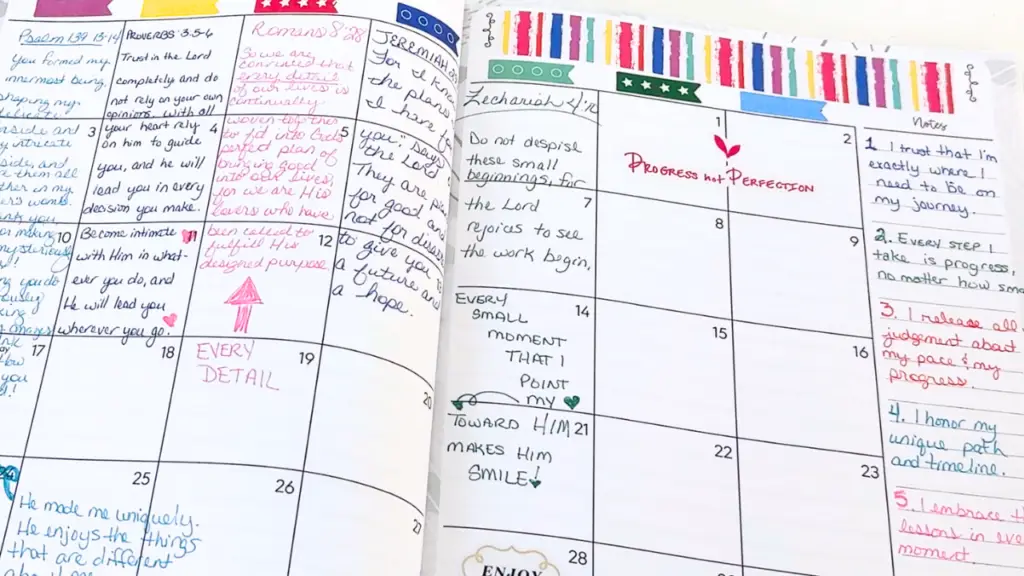 Psalm 139:13-14
you formed my
innermost being,
shaping my
delicate
inside and
intricate
them all
in my
you
making
mysteriously
you do
17
How
you
PROVERBS 3:5-6
Trust in the Lord
completely and do
not rely on your own
opinions. With all
3
your heart rely
on him to guide
you, and he will
lead you in every
decision you make.
10
Become intimate
with Him in what-
ever you do, and
He will lead you
wherever you go.
18
Romans 8:28
So we are
convinced that
every detail
of our lives is
continually
4
woven together
to fit into God's
perfect plan of
bringing good
into our lives,
for we are His
lovers who have
11
been called to
fulfill His
designed purpose.
EVERY
DETAIL
19
JEREMIAH
For I know
the plans
I have for
5
you," says
the Lord
They are plans
for good and
not for disaster
12
to give you
a future and
a hope.
20
24
25
He made me uniquely.
He enjoys the things
that are different
26
27
Zechariah 4:10
Do not despise
these small
beginnings, for
7
the Lord
rejoices to see
the work begin,
14
EVERY
SMALL
MOMENT
THAT I
POINT
MY
TOWARD HIM 21
MAKES HIM
SMILE!
28
ENJOY
1
2
PROGRESS not PERFECTION
8
9
15
16
22
23
Notes
1. I trust that I'm
exactly where I
need to be on
my journey.
2. EVERY STEP I
take is progress,
no matter how
3. I release all
judgement about
my pace & my
progress.
4. I honor my
unique path
and timeline.
5. I embrace
lessons in
moment.